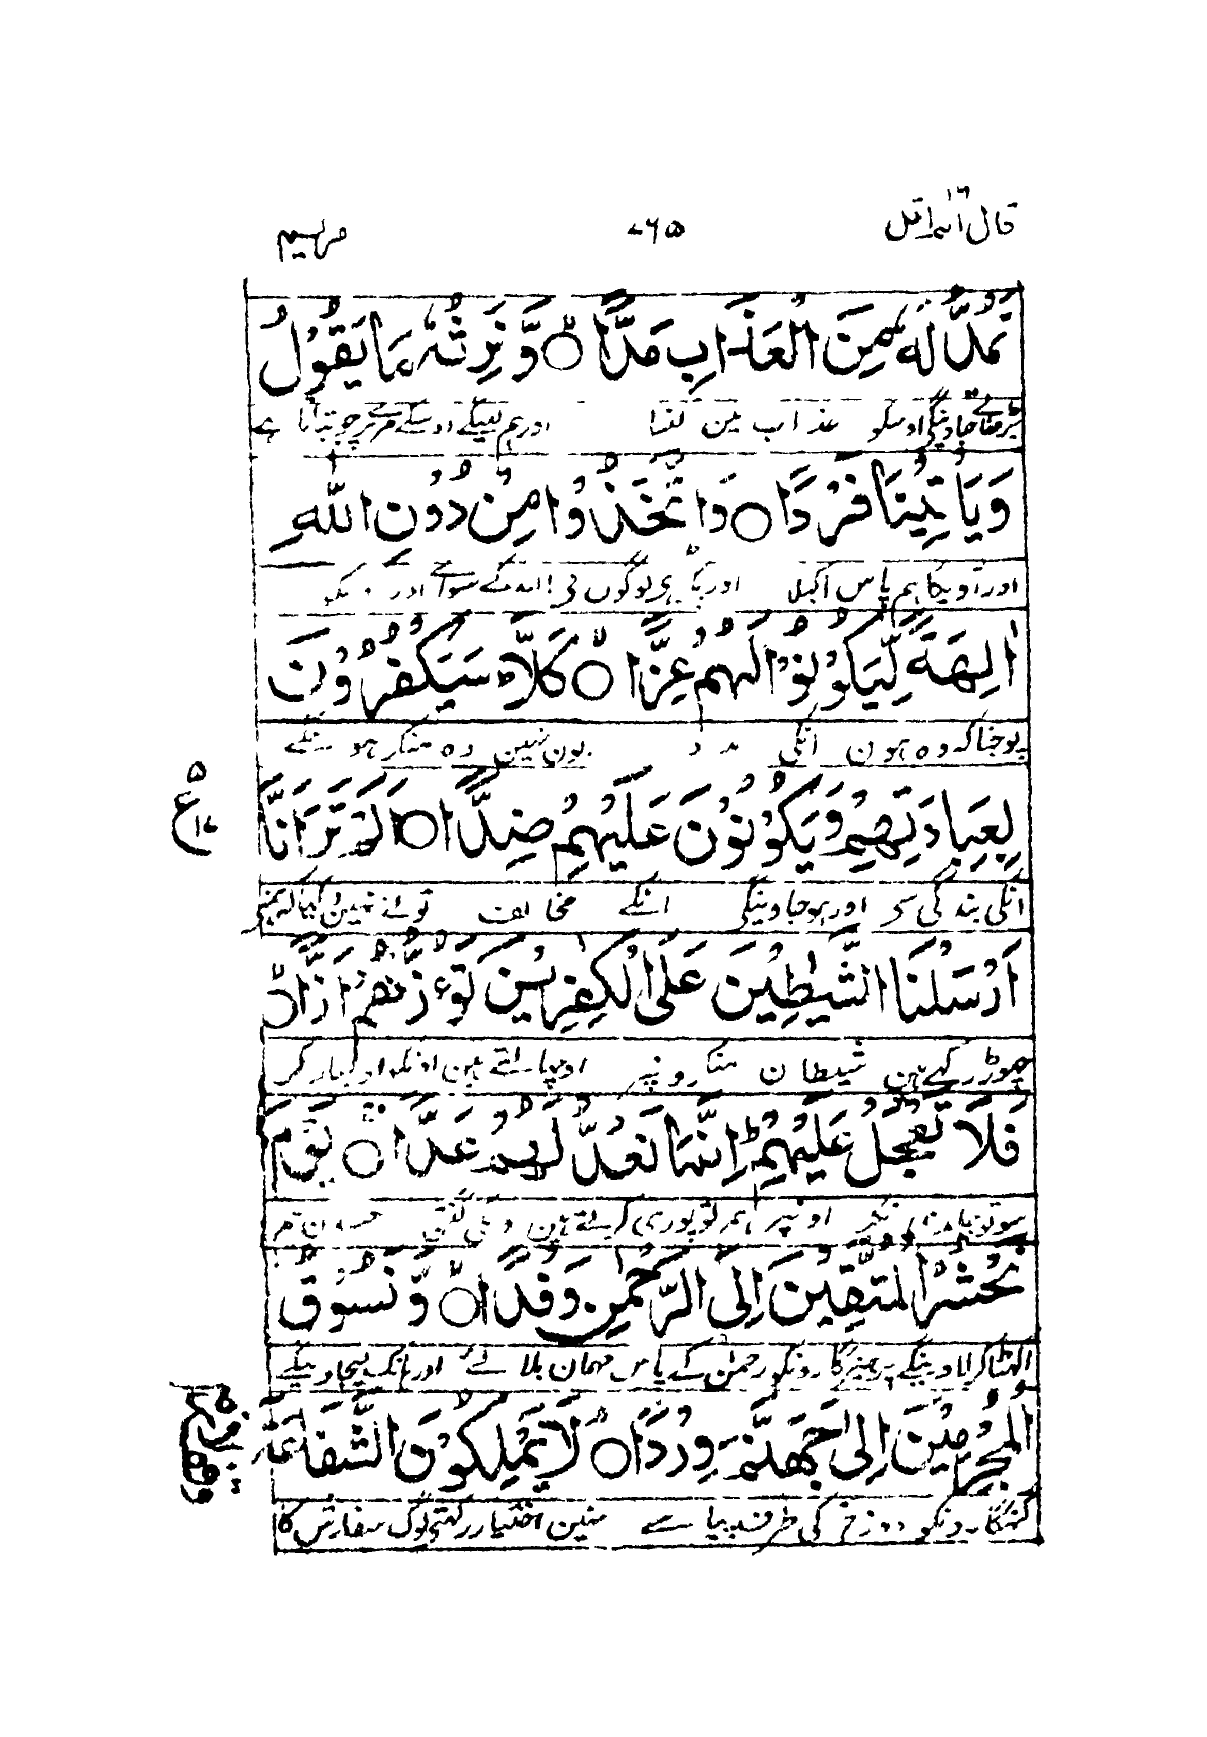 قال الم اقل ١٦
٧٦٥
مريم
نَمُدُّ لَهٗ مِنَ الْعَذَابِ مَدًّا ۙ وَّنَرِثُهٗ مَا يَقُوْلُ
بڑھاتے جاوینگے اوسکو عذاب مین لنبا اور ہم لیینگے اوسکے مرے پر جو بتاتا ہے
وَيَاْتِيْنَا فَرْدًا ○ وَاتَّخَذُوْا مِنْ دُوْنِ اللّٰهِ
اور آویگا ہم پاس اکیلا اور لوگوں نی اللہ کے سوائے اور
اٰلِهَةً لِّيَكُوْنُوْا لَهُمْ عِزًّا ۙ كَلَّا ؕ سَيَكْفُرُوْنَ
پوجنا کہ وہ ہون انکی مدد یون نہین وہ منکر ہونگے
بِعِبَادَتِهِمْ وَيَكُوْنُوْنَ عَلَيْهِمْ ضِدًّا ○ اَلَمْ تَرَ اَنَّا
ع ٥ ١٧
انکی بندگی سے اور ہو جاوینگے انکے مخالف تونے نہین دیکھا کہ ہمنے
اَرْسَلْنَا الشَّيٰطِيْنَ عَلَى الْكٰفِرِيْنَ تَؤُزُّهُمْ اَزًّا ۙ
چھوڑ رکھے ہین شیطان منکرونپر اوچھالتے ہین اونکو اوبھار کر
فَلَا تَعْجَلْ عَلَيْهِمْ ؕ اِنَّمَا نَعُدُّ لَهُمْ عَدًّا ۚ يَوْمَ
سو تو جلدی نکر اونپر ہم تو پوری کرتے ہین اونکی گنتی جسدن ہم
نَحْشُرُ الْمُتَّقِيْنَ اِلَى الرَّحْمٰنِ وَفْدًا ۙ وَّنَسُوْقُ
اکھٹا کر لاوینگے پرہیزگارونکو رحمٰن کے پاس مہمان بلائے اور ہانک لیجاوینگے
الْمُجْرِمِيْنَ اِلٰى جَهَنَّمَ وِرْدًا ۘ لَا يَمْلِكُوْنَ الشَّفَاعَةَ
گنہگارونکو دوزخ کی طرف پیاسے نہین اختیار رکھتے لوگ سفارش کا